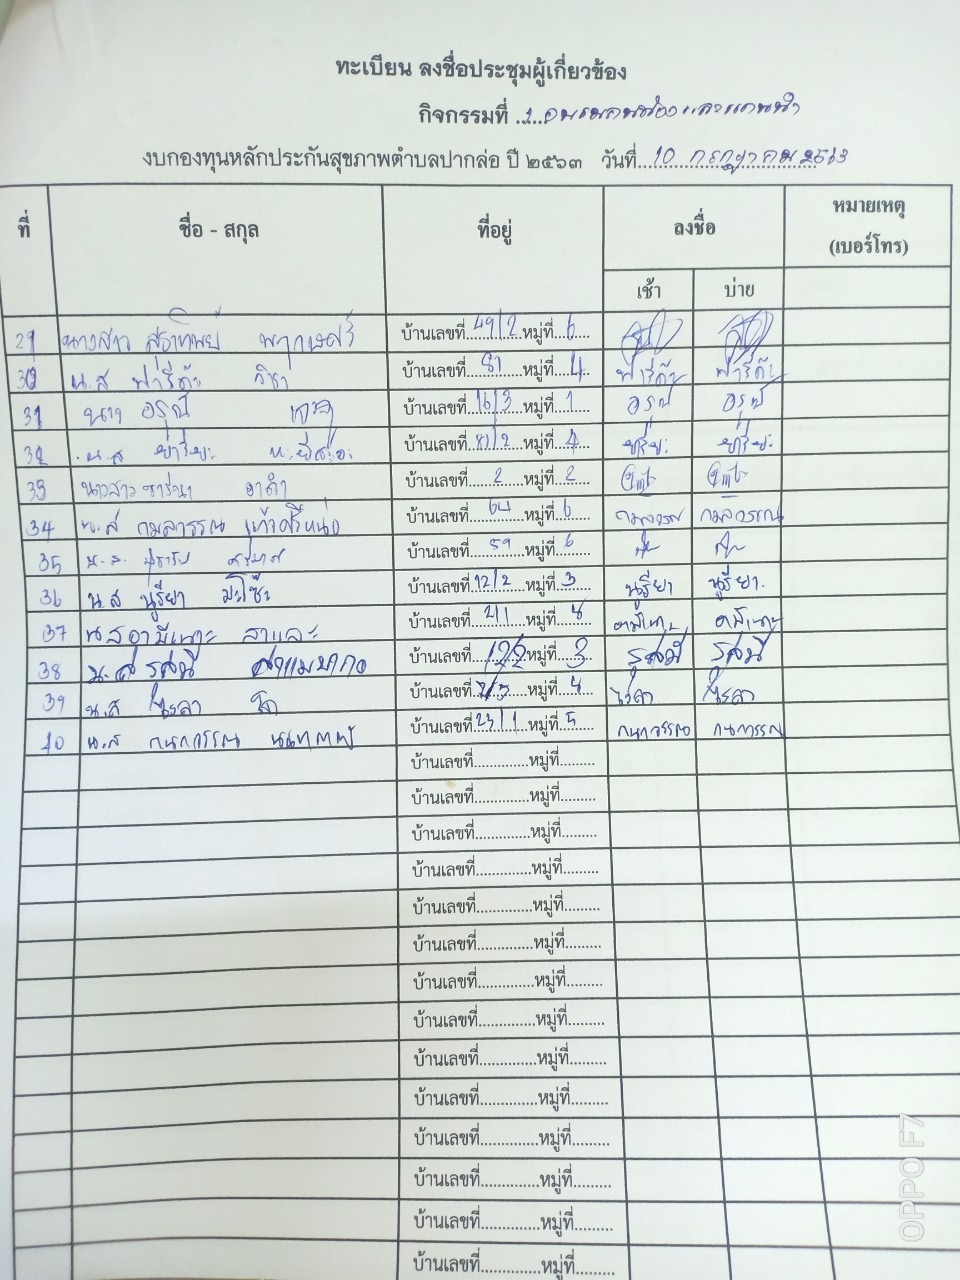 ทะเบียน ลงชื่อประชุมผู้เกี่ยวข้อง
กิจกรรมที่ ...1...
งบกองทุนหลักประกันสุขภาพตำบลปากล่อ ปี ๒๕๖๓ วันที่ 10 กรกฎาคม 2563
ที่ ชื่อ - สกุล ที่อยู่ ลงชื่อ หมายเหตุ
(เบอร์โทร)
เช้า บ่าย
29 นางสาว สุธาทิพย์ บ้านเลขที่ 49/2 หมู่ที่ 6
30 น.ส ฟารีด๊ะ บ้านเลขที่ 81 หมู่ที่ 4 ฟารีด๊ะ ฟารีด๊ะ
31 นาง อรุณี บ้านเลขที่ 16/3 หมู่ที่ 1 อรุณี อรุณี
32 น.ส ยารียะ บ้านเลขที่ 81/2 หมู่ที่ 4 ยารียะ ยารียะ
33 นางสาว อาดำ บ้านเลขที่ 2 หมู่ที่ 2
34 น.ส กมลวรรณ แก้วศรีหน่อ บ้านเลขที่ 64 หมู่ที่ 6 กมลวรรณ กมลวรรณ
35 น.ส. บ้านเลขที่ 59 หมู่ที่ 6
36 น.ส นูรียา มะโซ๊ะ บ้านเลขที่ 12/2 หมู่ที่ 3 นูรียา นูรียา.
37 น.ส อามีเนาะ สาและ บ้านเลขที่ 21 หมู่ที่ อามีเนาะ อามีเนาะ
38 น.ส รุสมี บ้านเลขที่ 122 หมู่ที่ 3 รุสมี รุสมี
39 น.ส ไรลา บ้านเลขที่ 7/3 หมู่ที่ 4 ไรลา ไรลา
40 น.ส กนกวรรณ บ้านเลขที่ 23/1 หมู่ที่ 5 กนกวรรณ กนกวรรณ
บ้านเลขที่.............หมู่ที่.........
บ้านเลขที่.............หมู่ที่.........
บ้านเลขที่.............หมู่ที่.........
บ้านเลขที่.............หมู่ที่.........
บ้านเลขที่.............หมู่ที่.........
บ้านเลขที่.............หมู่ที่.........
บ้านเลขที่.............หมู่ที่.........
บ้านเลขที่.............หมู่ที่.........
บ้านเลขที่.............หมู่ที่.........
บ้านเลขที่.............หมู่ที่.........
บ้านเลขที่.............หมู่ที่.........
บ้านเลขที่.............หมู่ที่.........
บ้านเลขที่.............หมู่ที่.........
บ้านเลขที่.............หมู่ที่.........
OPPO F7